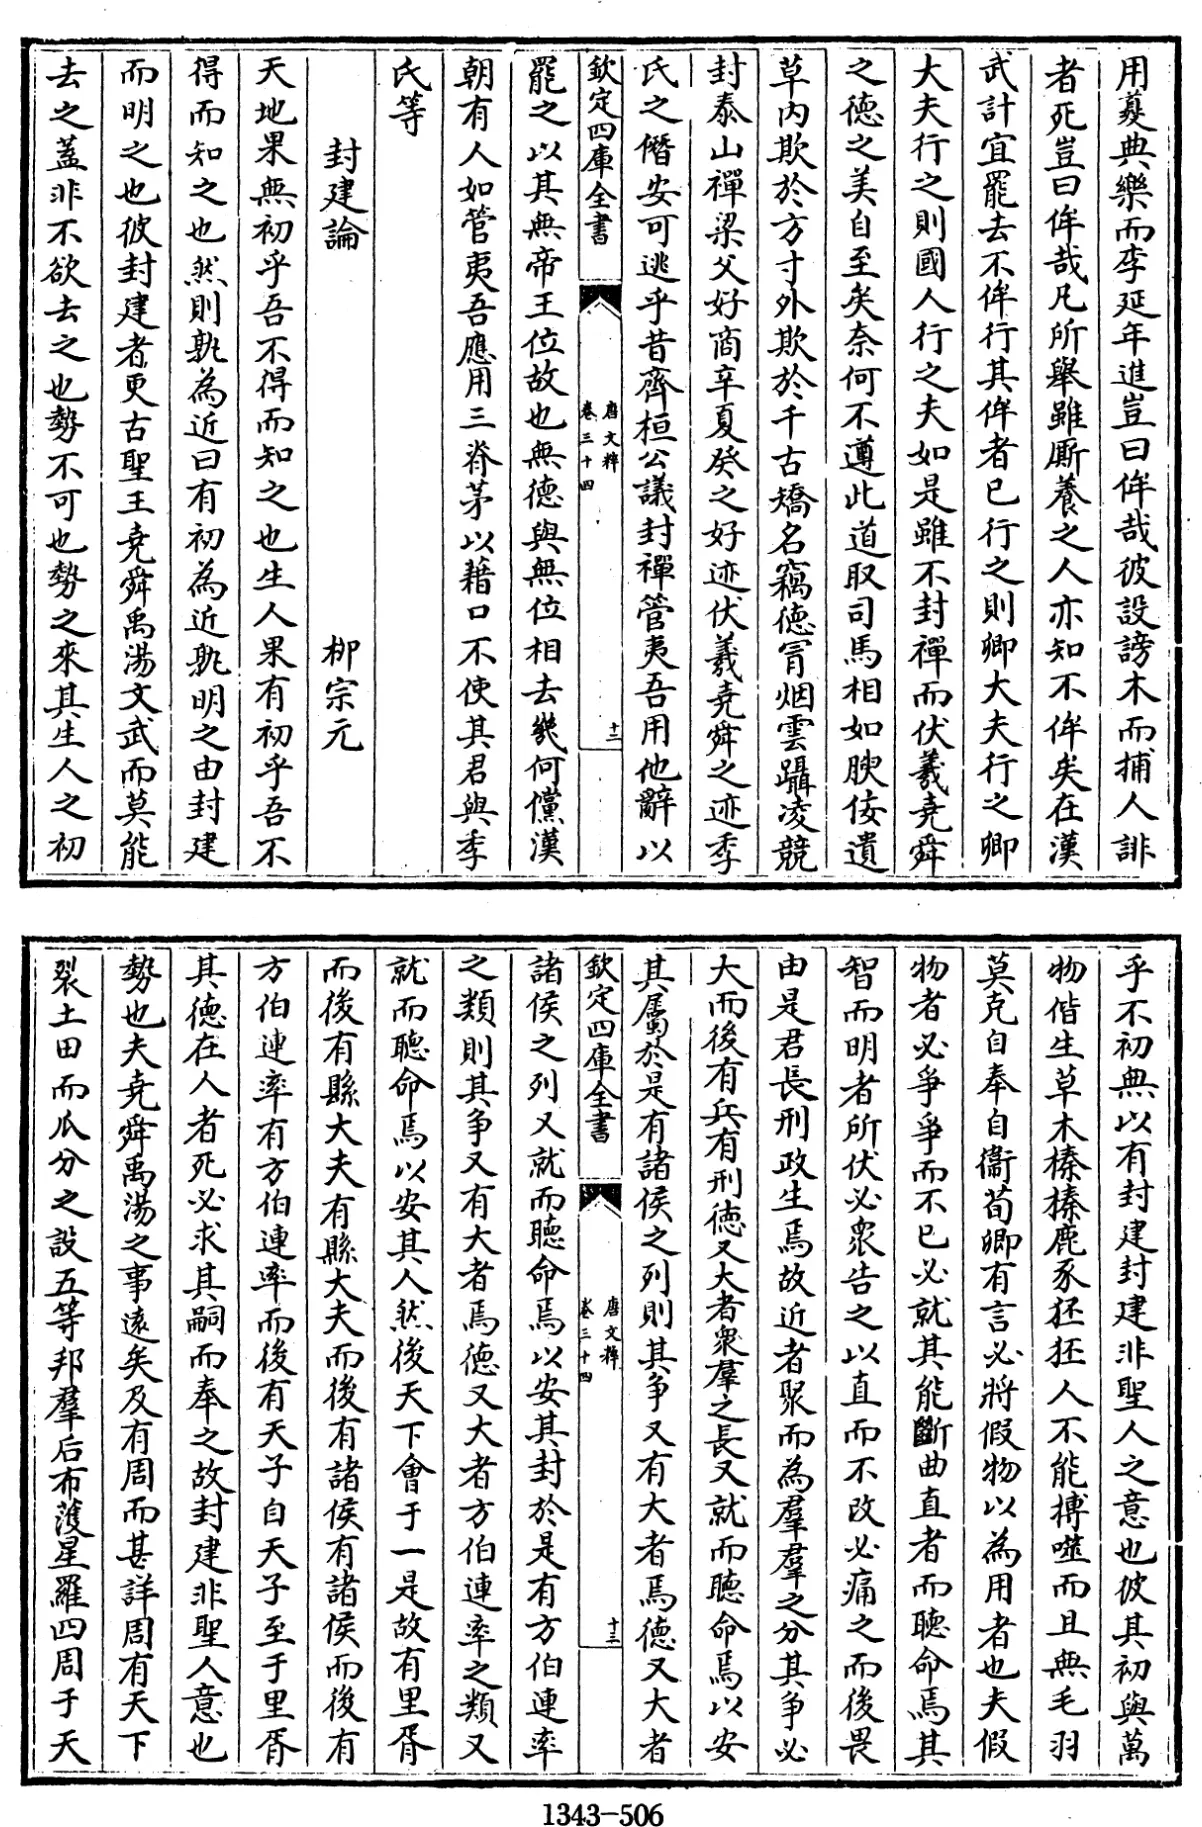 用夔典樂而李延年進豈曰侔哉彼設謗木而捕人誹
者死豈曰侔哉凡所舉雖廝養之人亦知不侔矣在漢
武計宜罷去不侔行其侔者已行之則卿大夫行之卿
大夫行之則國人行之夫如是雖不封禪而伏羲堯舜
之德之美自至矣奈何不遵此道取司馬相如腴佞遺
草内欺於方寸外欺於千古矯名竊德冐烟雲躡凌競
封泰山禪梁父好商辛夏癸之好迹伏羲堯舜之迹季
氏之僭安可逃乎昔齊桓公議封禪管夷吾用他辭以
欽定四庫全書
唐文粹
卷三十四
十二
罷之以其無帝王位故也無德與無位相去幾何儻漢
朝有人如管夷吾應用三脊茅以藉口不使其君與季
氏等
封建論
柳宗元
天地果無初乎吾不得而知之也生人果有初乎吾不
得而知之也然則孰為近曰有初為近孰明之由封建
而明之也彼封建者更古聖王堯舜禹湯文武而莫能
去之蓋非不欲去之也勢不可也勢之來其生人之初
乎不初無以有封建封建非聖人之意也彼其初與萬
物偕生草木榛榛鹿豕狉狉人不能搏噬而且無毛羽
莫克自奉自衞荀卿有言必將假物以為用者也夫假
物者必爭爭而不已必就其能斷曲直者而聽命焉其
智而明者所伏必衆告之以直而不改必痛之而後畏
由是君長刑政生焉故近者聚而為羣羣之分其争必
大而後有兵有刑德又大者衆羣之長又就而聽命焉以安
其屬於是有諸侯之列則其争又有大者焉德又大者
欽定四庫全書
唐文粹
卷三十四
十三
諸侯之列又就而聽命焉以安其封於是有方伯連率
之類則其争又有大者焉德又大者方伯連率之類又
就而聽命焉以安其人然後天下會于一是故有里胥
而後有縣大夫有縣大夫而後有諸侯有諸侯而後有
方伯連率有方伯連率而後有天子自天子至于里胥
其德在人者死必求其嗣而奉之故封建非聖人意也
勢也夫堯舜禹湯之事遠矣及有周而甚詳周有天下
裂土田而瓜分之設五等邦羣后布濩星羅四周于天
1343-506